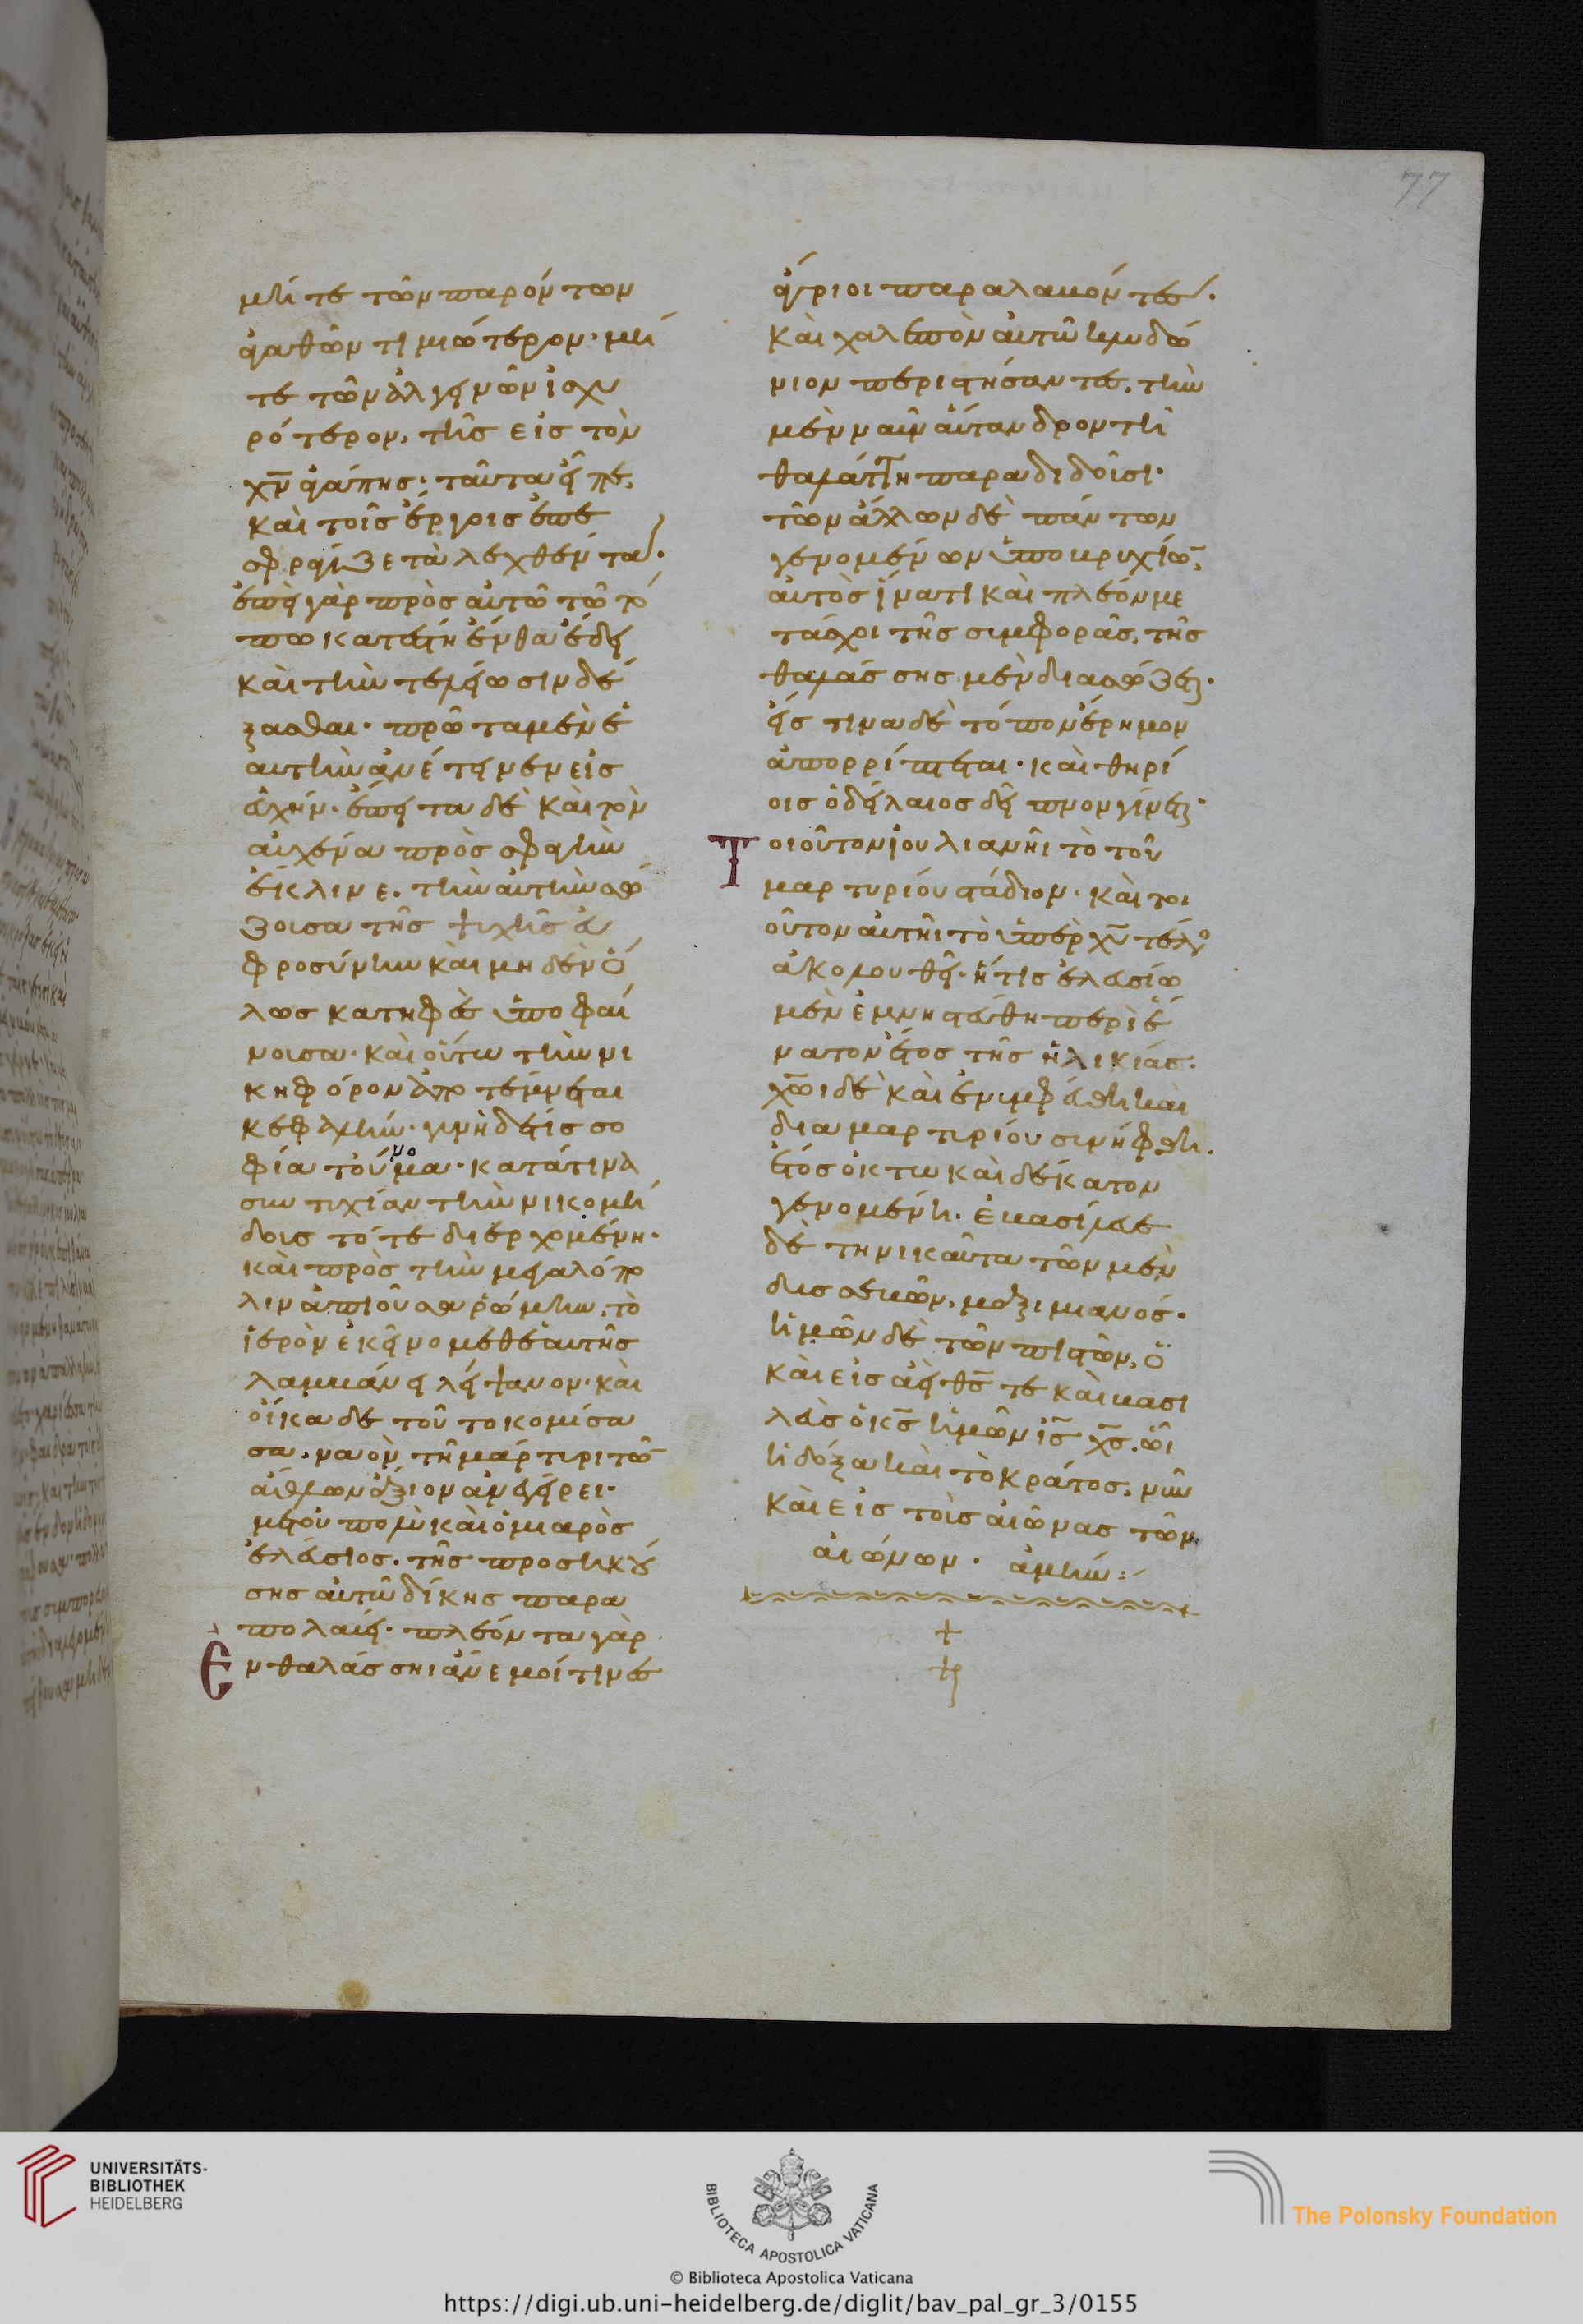 77
μήτε τῶν παρόντων
ἀγαθῶν τιμιώτερον· μή
τε τῶν ἀλγεινῶν ἰσχυ
ρότερον, τῆς εἰς τὸν
χ̅ν̅ ἀγάπης· ταῦτα εἶπε,
καὶ τοῖς ἔργοις ἐπε
σφράγιζε τὰ λεχθέντα·
ἐπεὶ γὰρ πρὸς αὐτῶ τῶ τό
πω κατέστη ἔνθα ἔδει
καὶ τὴν τελείωσιν δέ
ξασθαι· πρῶτα μὲν ἑ
αυτὴν ἀνέτεινεν εἰς
εὐχήν· ἔπειτα δὲ καὶ τὸν
αὐχένα πρὸς σφαγὴν
ἔκλινε, τὴν αὐτὴν σώ
ζουσα τῆς ψυχῆς εὐ
φροσύνην καὶ μηδὲν ὅ
λως κατηφὲς ὑποφαί
νουσα· καὶ οὕτω τὴν νι
κηφόρον ἀποτέμνεται
κεφαλήν· γυνὴ δέ τις σο
φία τοὔνομα· κατά τινα
συντυχίαν τὴν νικομή
δους τότε διερχομένη·
καὶ πρὸς τὴν μεγαλόπο
λιν ἀπιοῦσα ῥώμην, τὸ
ἱερὸν ἐκεῖνο μεθ' ἑαυτῆς
λαμβάνει λείψανον· καὶ
οἴκαδε τοῦτο κομίσα
σα, ναὸν τῆ μάρτυρι τῶν
ἄθλων ἄξιον ἀνεγείρει·
μετ' οὐ πολὺ καὶ ὁ μιαρὸς
ἐλεύσιος· τῆς προσηκού
σης αὐτῶ δίκης παρα
πολαύει· πλέοντα γὰρ
Ἐν θαλάσσηι ἄνεμοί τινες
ἄγριοι παραλαβόντες·
καὶ χαλεπὸν αὐτῶ κλυδώ
νιον περιστήσαντες, τὴν
μὲν ναῦν αὔτανδρον τῆ
θαλάττη παραδιδοῦσι·
τῶν ἄλλων δὲ πάντων
γενομένων ὑποβρυχίων,
αὐτὸς ἵνα τι καὶ πλέον με
τάσχοι τῆς συμφορᾶς, τῆς
θαλάσσης μὲν διασώζεται·
εἴς τινα δὲ τόπον ἔρημον
ἀπορρίπτεται· καὶ θηρί
οις ὁ δείλαιος δεῖπνον γίνεται·
Τοιοῦτον ἰουλιανῆι τὸ τοῦ
μαρτυρίου στάδιον· καὶ τοι
οῦτον αὐτῆι τὸ ὑπὲρ χ̅υ̅ τέλος
ἀκολουθεῖ· ἥτις ἐλευσίω
μὲν ἐμνηστεύθη περὶ ἔ
νατον ἔτος τῆς ἡλικίας·
χ̅ω̅ι δὲ καὶ ἐνυμφεύθη καὶ
δια μαρτυρίου συνήφθη·
ἔτος ὀκτωκαιδέκατον
γενομένη· ἐβασίλευε
δὲ τηνικαῦτα τῶν μὲν
δυσσεβῶν, μαξιμιανός·
ἡμῶν δὲ τῶν πιστῶν, ὁ
καὶ εἰς ἀεὶ θ̅ς̅ τε καὶ βασι
λεὺς ὁ κ̅ς̅ ἡμῶν ι̅ς̅ χ̅ς̅· ὧι
ἡ δόξα καὶ τὸ κράτος, νῦν
καὶ εἰς τοὺς αἰῶνας τῶν
αἰώνων· ἀμήν:-
UNIVERSITÄTS-
BIBLIOTHEK
HEIDELBERG
BIBLIOTECA APOSTOLICA VATICANA
The Polonsky Foundation
© Biblioteca Apostolica Vaticana
https://digi.ub.uni-heidelberg.de/diglit/bav_pal_gr_3/0155